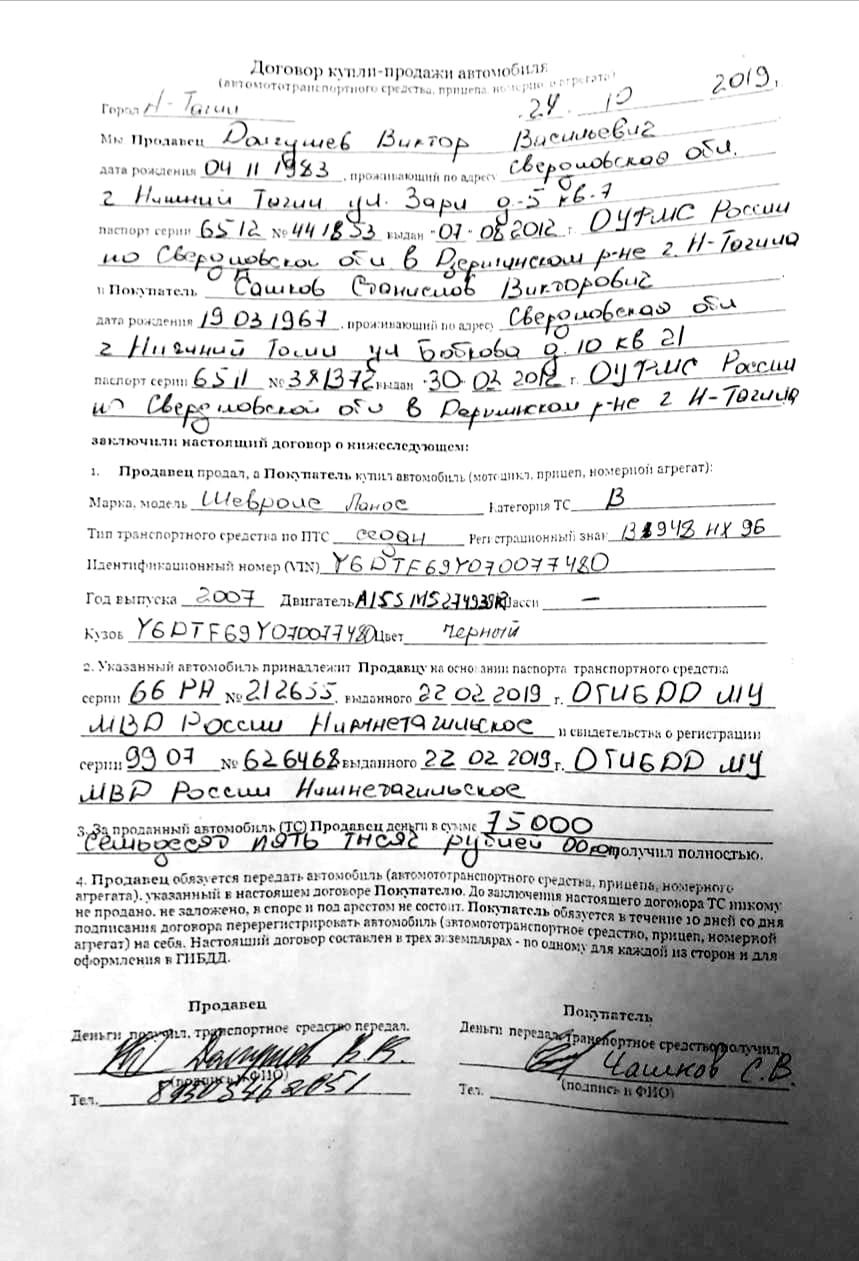 Договор купли-продажи автомобиля
(автомототранспортного средства, прицепа, номерного агрегата)
Город Н-Тагил 24. 10 2019.
Мы Продавец Долгушев Виктор Васильевич
дата рождения 04 11 1983, проживающий по адресу Свердловская обл.
г Нижний Тагил ул. Зари д-5 кв-7
паспорт серии 6512 № 441853 выдан 07.08 2012 г. ОУФМС России
по Свердловской обл в Дзержинском р-не г. Н-Тагила
и Покупатель Чашков Станислав Викторович
дата рождения 19 03 1967, проживающий по адресу Свердловская обл
г Нижний Тагил ул Бобкова д. 10 кв 21
паспорт серии 6511 № 381372 выдан 30 02 2012 г. ОУФМС России
по Свердловской обл в р-не г Н-Тагила
заключили настоящий договор о нижеследующем:
1. Продавец продал, а Покупатель купил автомобиль (мотоцикл, прицеп, номерной агрегат):
Марка, модель Шевроле Ланос Категория ТС В
Тип транспортного средства по ПТС седан Регистрационный знак 948 НХ 96
Идентификационный номер (VIN) Y6DTF69Y070077480
Год выпуска 2007 Двигатель Шасси —
Кузов Y6DTF69Y070077480 Цвет черный
2. Указанный автомобиль принадлежит Продавцу на основании паспорта транспортного средства
серии 66 РН № 212655, выданного 22 02 2019 г. ОГИБДД МУ
МВД России Нижнетагильское и свидетельства о регистрации
серии 99 07 № 626468 выданного 22 02 2019 г. ОГИБДД МУ
МВД России Нижнетагильское
3. За проданный автомобиль (ТС) Продавец деньги в сумме 75000
Семьдесят пять тысяч рублей 00 коп получил полностью.
4. Продавец обязуется передать автомобиль (автомототранспортного средства, прицепа, номерного
агрегата), указанный в настоящем договоре Покупателю. До заключения настоящего договора ТС никому
не продано, не заложено, в споре и под арестом не состоит. Покупатель обязуется в течение 10 дней со дня
подписания договора перерегистрировать автомобиль (автомототранспортное средство, прицеп, номерной
агрегат) на себя. Настоящий договор составлен в трех экземплярах - по одному для каждой из сторон и для
оформления в ГИБДД.
Продавец Покупатель
Деньги получил, транспортное средство передал. Деньги передал, транспортное средство получил.
Долгушев В.В. Чашков С.В.
(подпись и ФИО) (подпись и ФИО)
Тел. Тел.